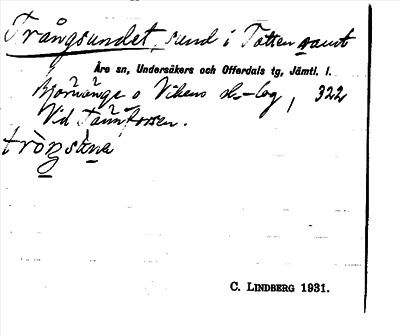 Trångsundet, sund i Totten samt
Åre sn, Undersåkers och Offerdals tg, Jämtl. l.
Björnänge o Vikens sk-lag, 322
Vid Tännforsen.
C. LINDBERG 1931.